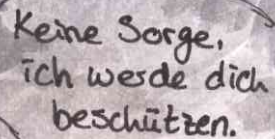 Keine Sorge,
ich werde dich
beschützen.